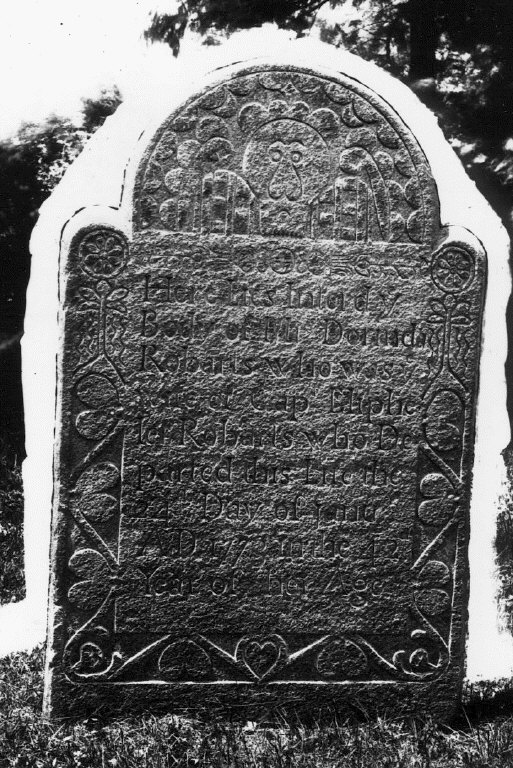 Here lies Intard y
Body of Mrs Dorinda
Robarts who was y
of Cap Eliphe
let Robarts who De
parted this Life the
24 Day of
A D in the 42
Year of her Age